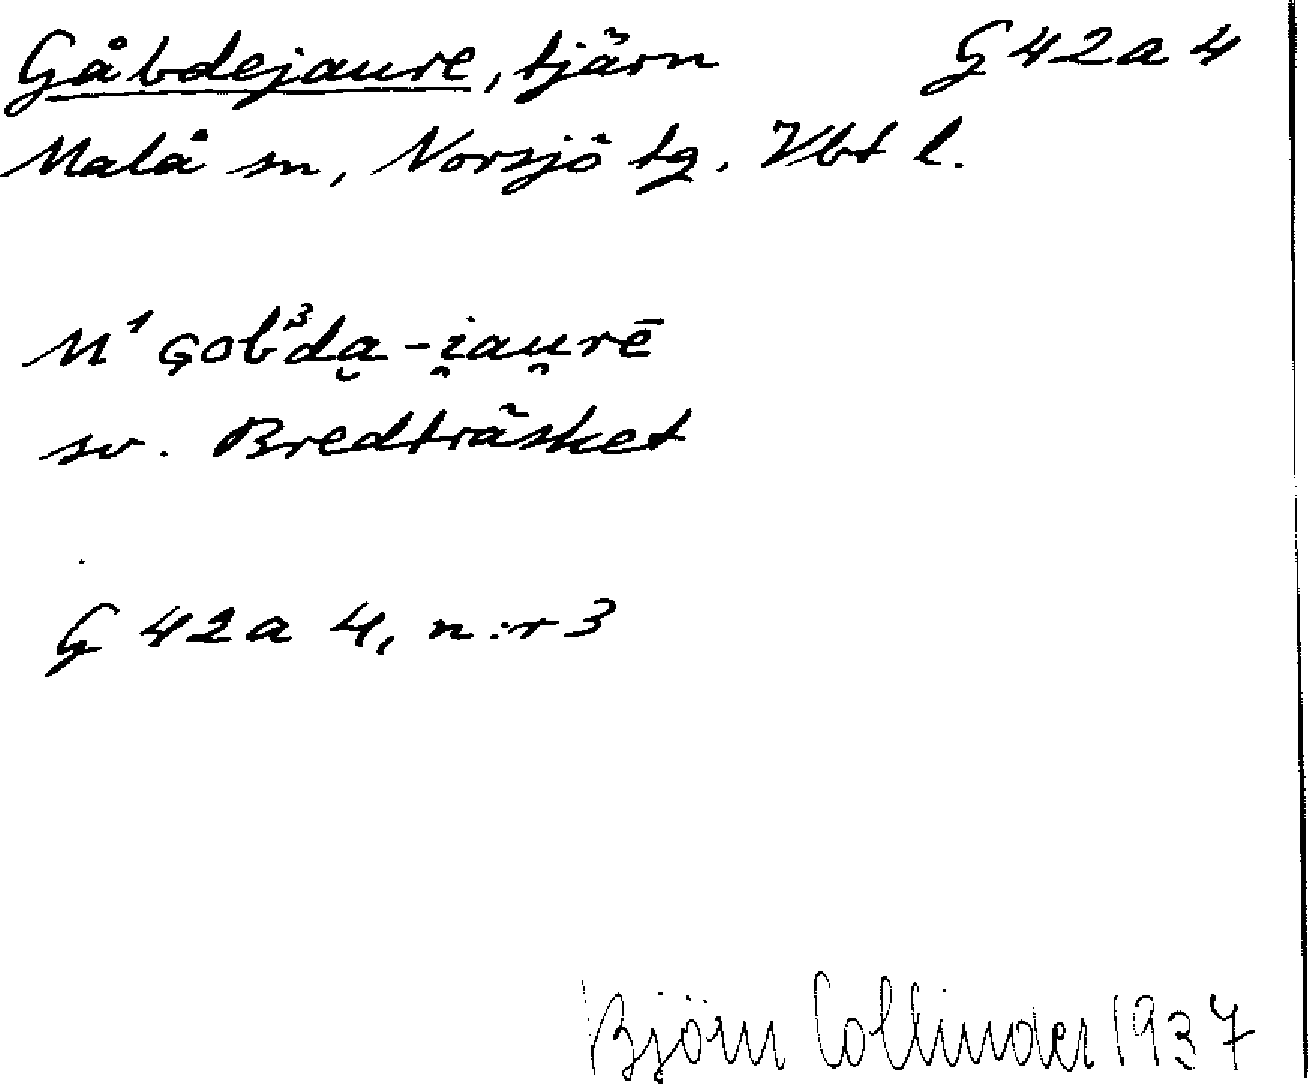 Gåbdejaure, tjärn G 42 a 4
Malå sn, Norsjö tg. Vbt l.
M¹ Gob³da̮-i̯au̯rē
sv. Bredträsket
G 42 a 4, n:r 3
Björn Collinder 1937